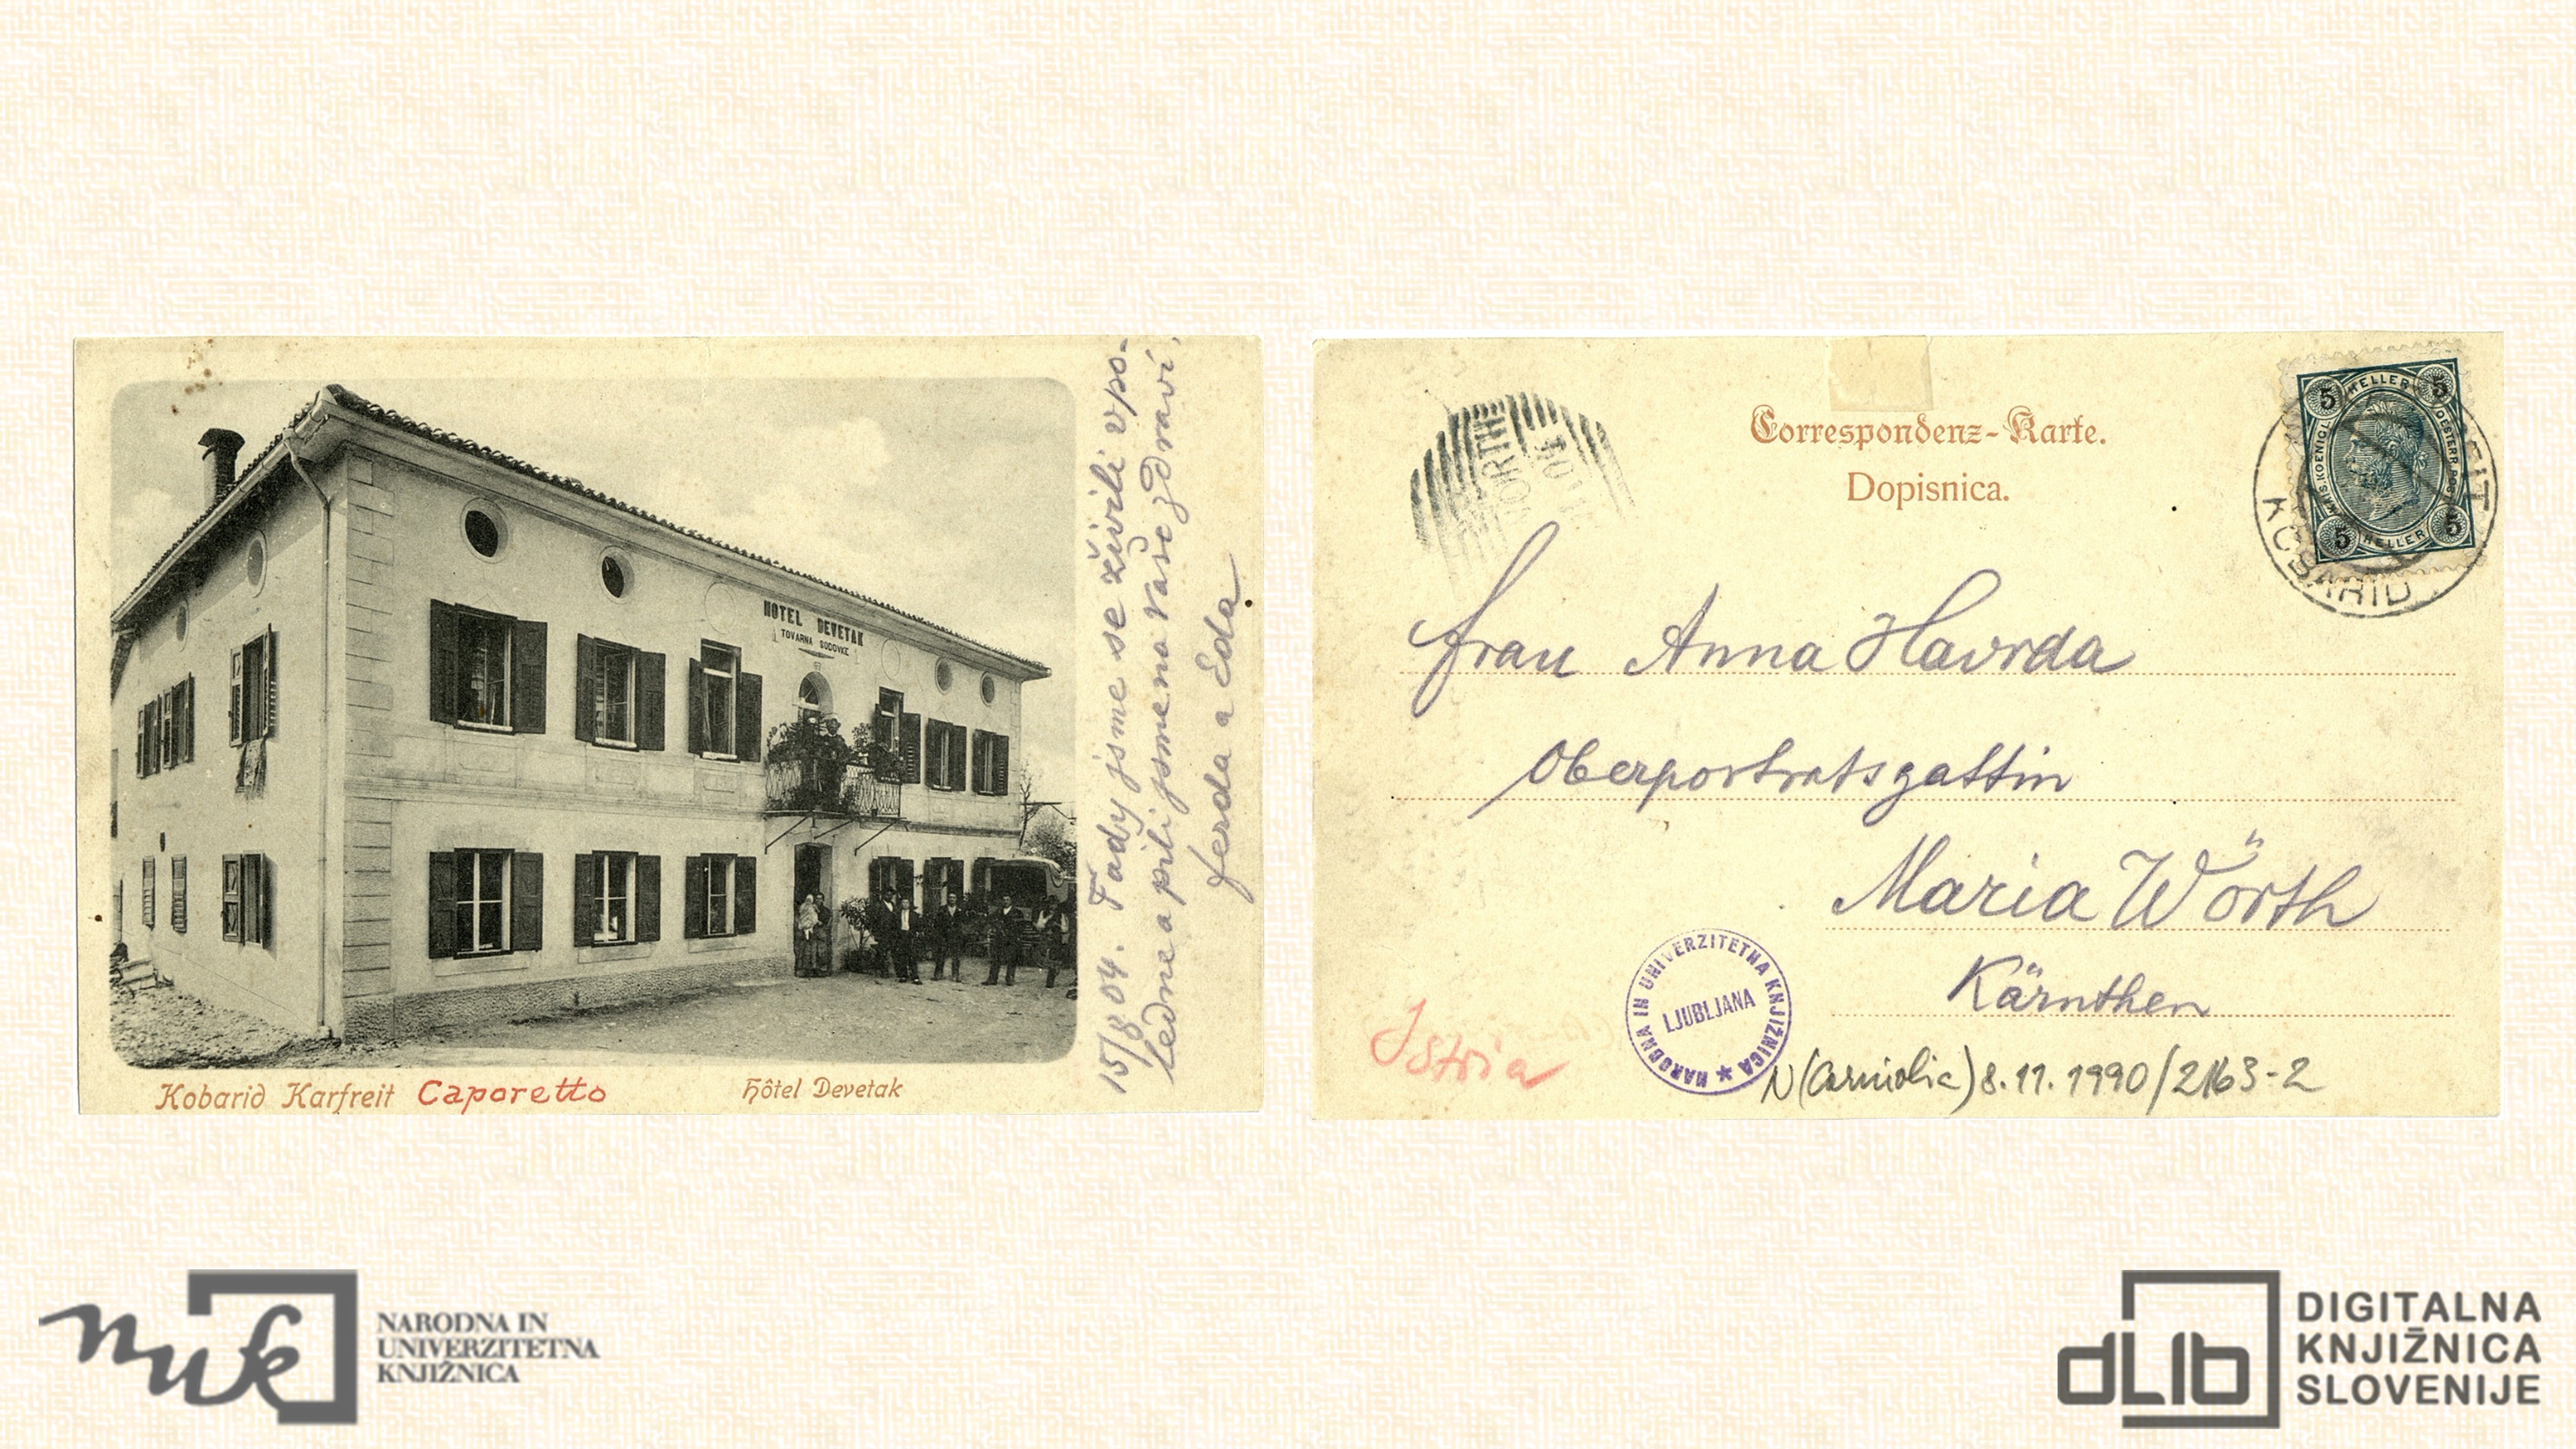 HOTEL DEVETAK
TOVARNA SODOVKE
Kobarid Karfreit Caporetto
Hôtel Devetak
15/8 04. Tady jsme se živili vpo-
ledne a pili jsme na Vaše zdraví,
Ferda a Eda
WÖRTH
04
Correspondenz-Karte.
Dopisnica.
5 HELLER 5
KAIS. KOENIGL. OESTERR. POST
5 HELLER 5
KOBARID
Frau Anna Havrda
Oberpostratsgattin
Maria Wörth
Kärnthen
Istria
NARODNA IN UNIVERZITETNA KNJIŽNICA
LJUBLJANA
N (Carniolic) 8. 11. 1990/2163-2
nuk
NARODNA IN
UNIVERZITETNA
KNJIŽNICA
dLib
DIGITALNA
KNJIŽNICA
SLOVENIJE